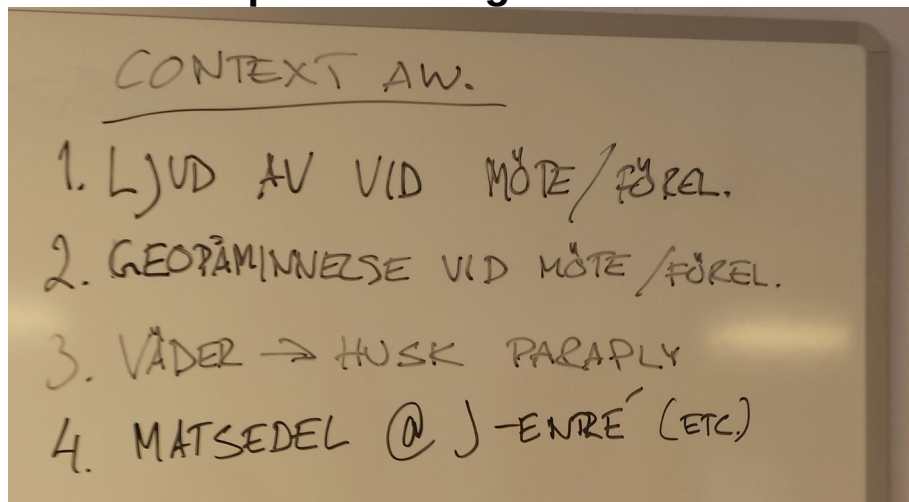 CONTEXT AW.
1. LJUD AV VID MÖTE/FÖREL.
2. GEOPÅMINNELSE VID MÖTE/FÖREL.
3. VÄDER → HUSK PARAPLY
4. MATSEDEL @ J-ENRÉ (ETC.)